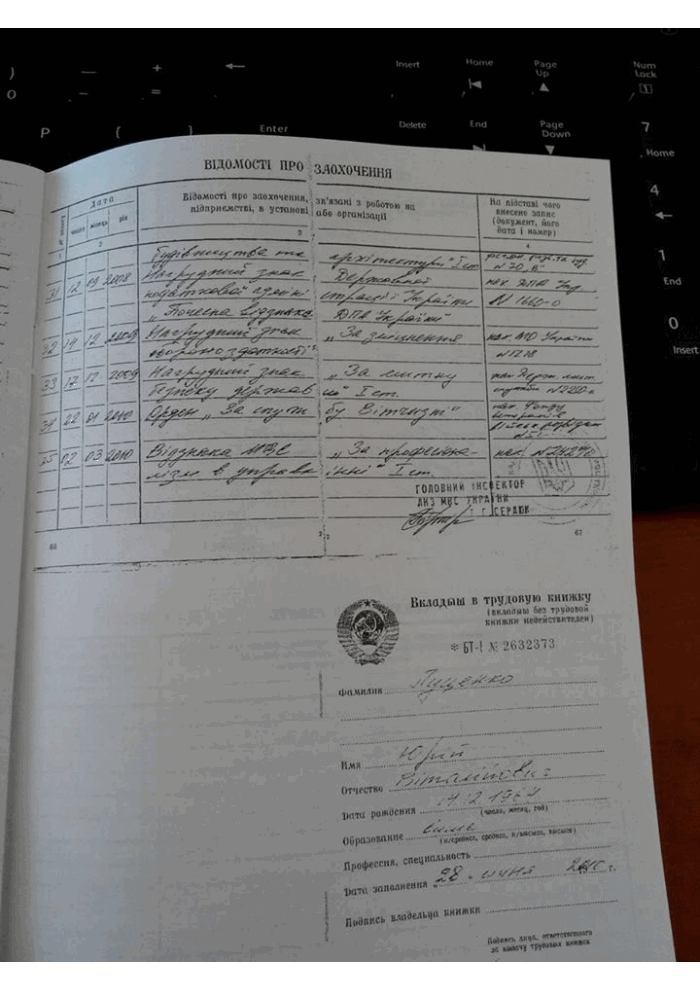 )
—
+
←
Insert
Home
Page
Up
Num
Lock
O
-
=
▲
P
{
}
Enter
Delete
End
Page
Down
7
Home
4
←
1
End
0
Insert
ВІДОМОСТІ ПРО ЗАОХОЧЕННЯ
Дата
число місяць рік
Відомості про заохочення, зв'язані з роботою на
підприємстві, в установі або організації
На підставі чого
внесено запис
(документ, його
дата і номер)
2 3 4
будівництва та архітектури" I ст.
31 12 09 2008 Нагрудний знак Державної
податкової адміністрації України № 1660-о
„Почесна відзнака ДПА України"
32 14 12 2009 Нагрудний знак „За зміцнення
обороноздатності"
33 17 12 2009 Нагрудний знак „За
безпеку держави" I ст.
34 22 01 2010 Орден „За службу Вітчизні"
35 02 03 2010 Відзнака МВС „За професіона-
лізм в управлінні" I ст.
ГОЛОВНИЙ ІНСПЕКТОР
МВС УКРАЇНИ
Г. СЕРДЮК
66 67
Вкладыш в трудовую книжку
(вкладыш без трудовой
книжки недействителен)
* БТ-I № 2632373
Фамилия Луценко
Имя Юрий
Отчество Віталійович
Дата рождения 14.12.1964
(число, месяц, год)
Образование
Профессия, специальность
Дата заполнения „28" июня
Подпись владельца книжки
Подпись лица, ответственного
за выдачу трудовых книжек